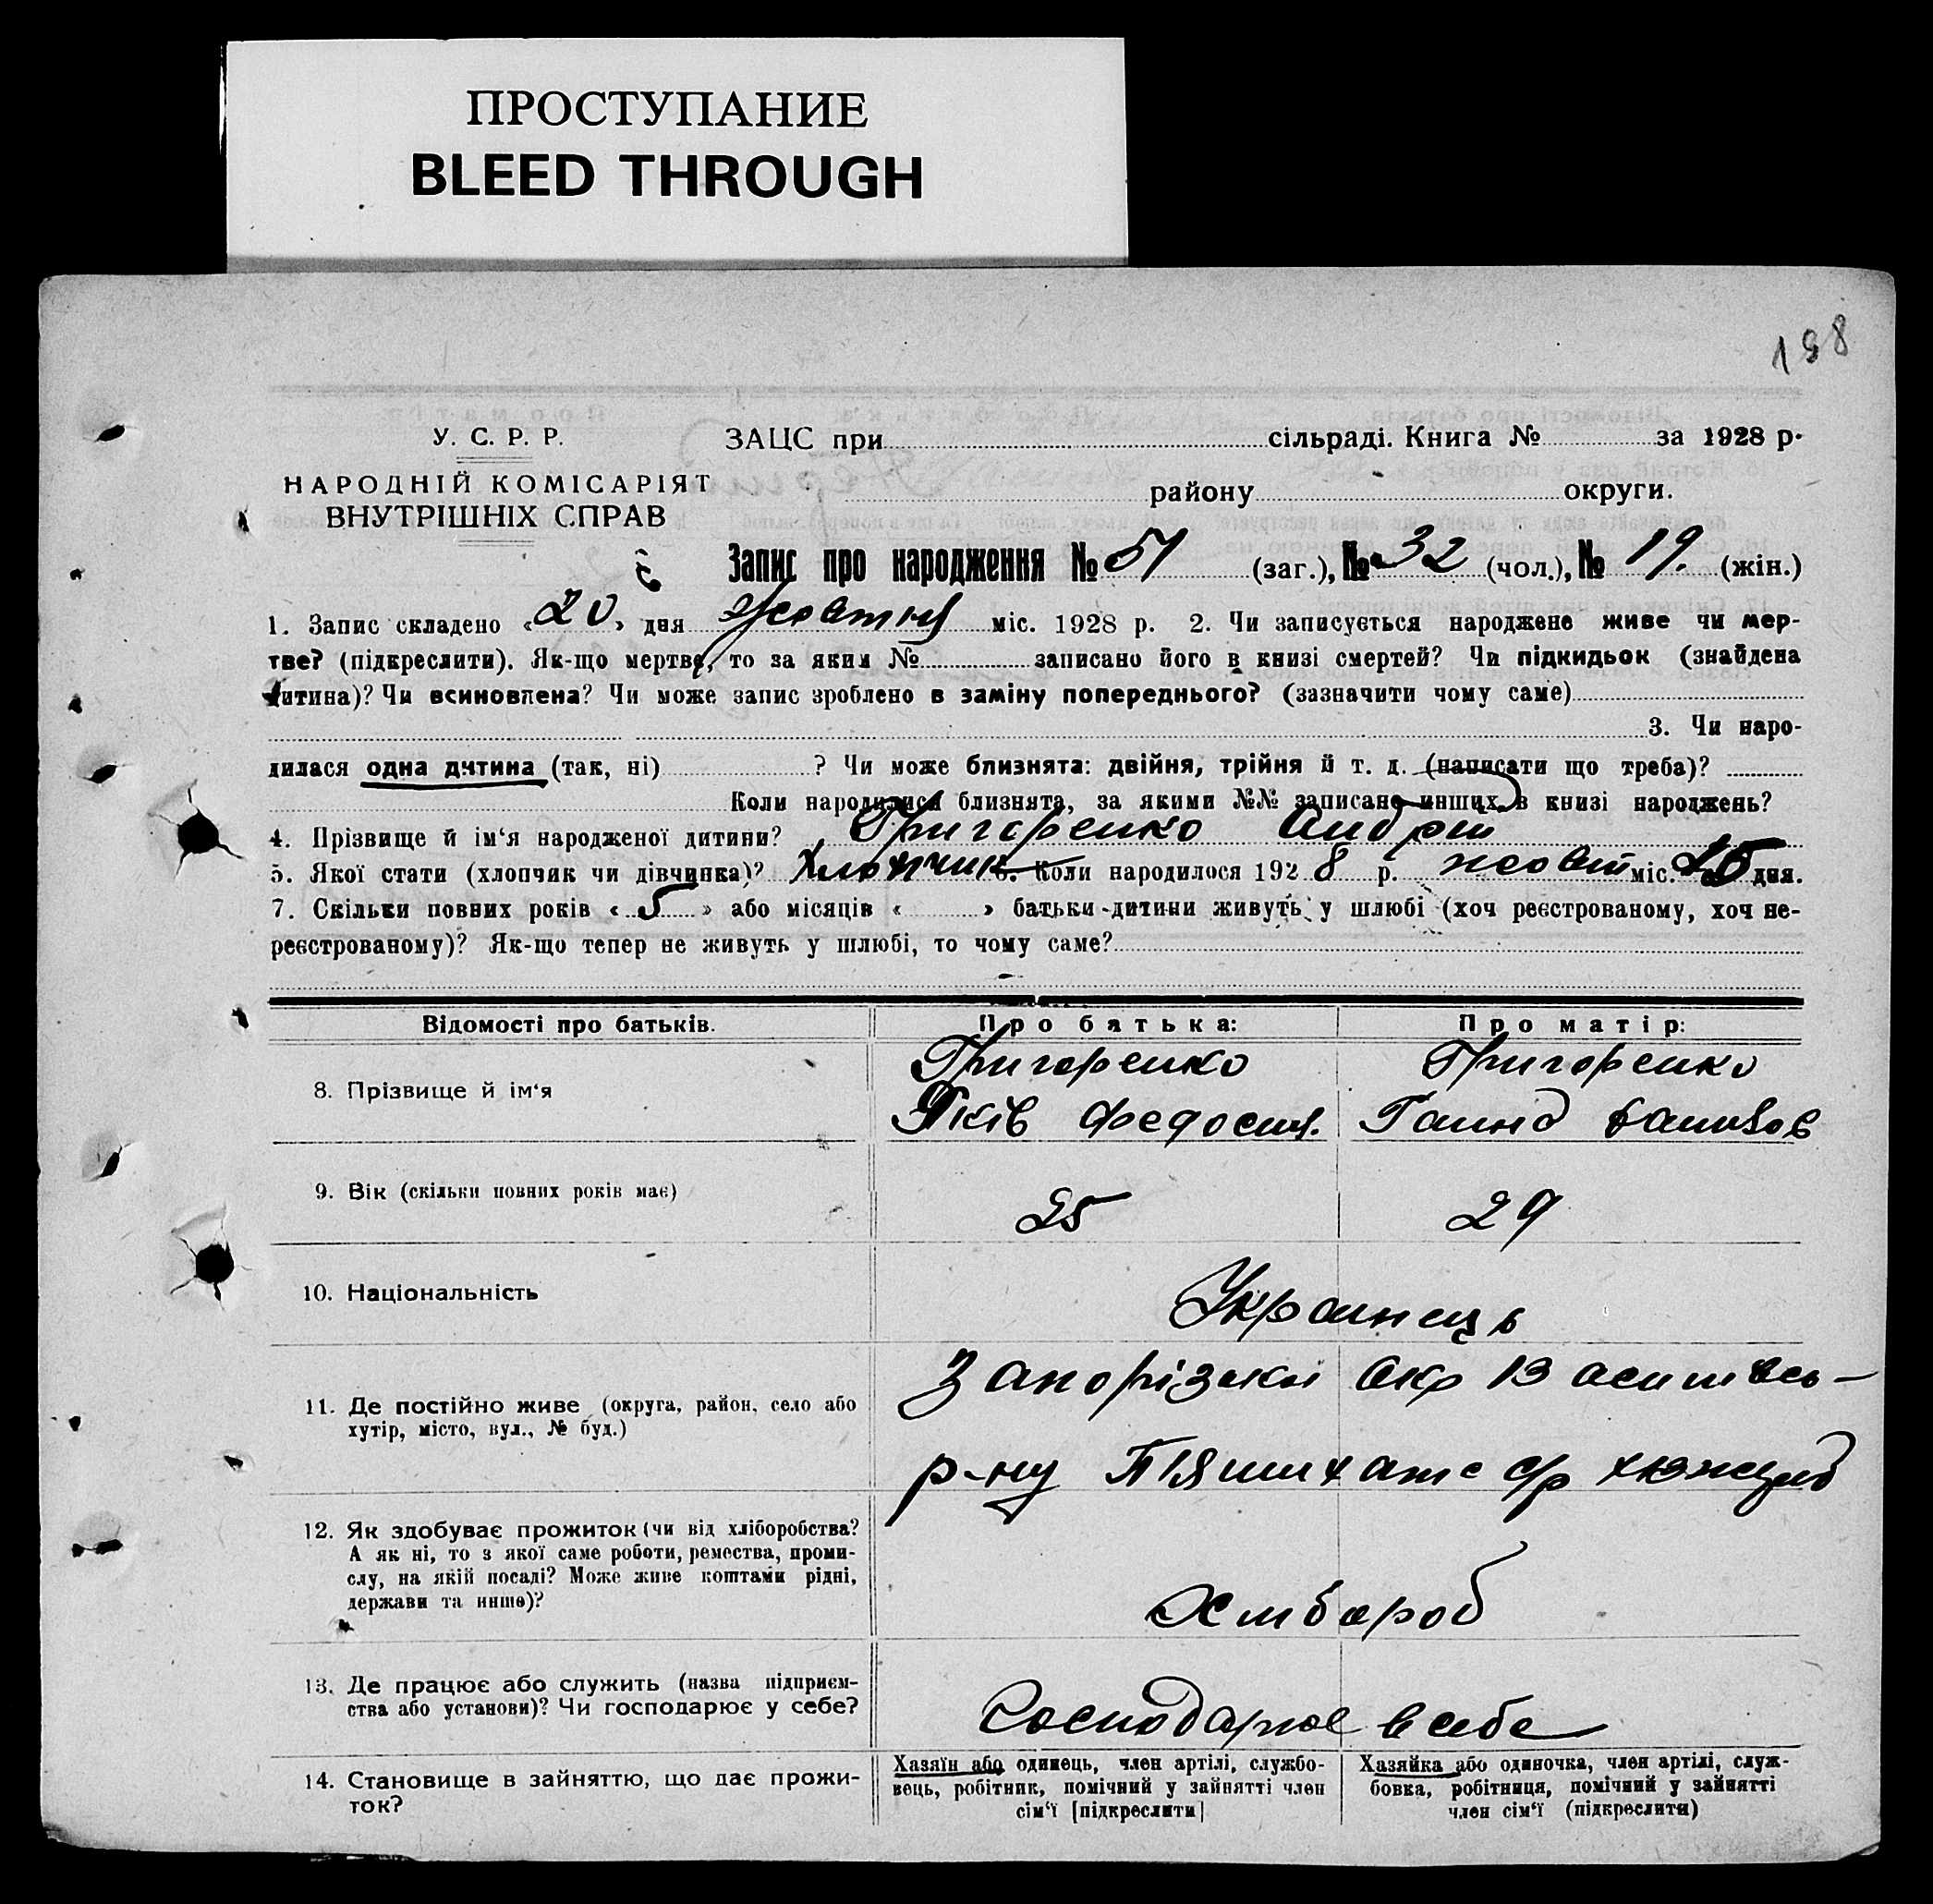 ПРОСТУПАНИЕ
BLEED THROUGH
198
У. С. Р. Р.
НАРОДНІЙ КОМІСАРІЯТ
ВНУТРІШНІХ СПРАВ
ЗАЦС при сільраді. Книга № за 1928 р.
району округи.
Запис про народження № 51 (заг.), № 32 (чол.), № 19. (жін.)
1. Запис складено «20» дня жовтня міс. 1928 р. 2. Чи записується народжене живе чи мер-
тве? (підкреслити). Як-що мертве, то за яким № записано його в книзі смертей? Чи підкидьок (знайдена
дитина)? Чи всиновлена? Чи може запис зроблено в заміну попереднього? (зазначити чому саме)
3. Чи наро-
дилася одна дитина (так, ні) ? Чи може близнята: двійня, трійня й т. д. (написати що треба)?
Коли народилися близнята, за якими №№ записано инших в книзі народжень?
4. Прізвище й ім‘я народженої дитини? Григоренко Андрій
5. Якої стати (хлопчик чи дівчинка)? Хлопчик. Коли народилося 1928 р. жовт міс. 15 дня.
7. Скільки повних років «5» або місяців « » батьки дитини живуть у шлюбі (хоч реєстрованому, хоч не-
реєстрованому)? Як-що тепер не живуть у шлюбі, то чому саме?
Відомості про батьків. Про батька: Про матір:
8. Прізвище й ім‘я
Григоренко Григоренко
Яків Федосий. Ганна
9. Вік (скільки повних років має) 25 29
10. Національність Украинець
11. Де постійно живе (округа, район, село або
хутір, місто, вул., № буд.)
Запорізьки Окр Василвсь-
р-ну с/р
12. Як здобуває прожиток (чи від хліборобства?
А як ні, то з якої саме роботи, ремества, проми-
слу, на якій посаді? Може живе коштами рідні,
держави та инше)?
Хлибороб
13. Де працює або служить (назва підприєм-
ства або установи)? Чи господарює у себе?
Господарює в себе
14. Становище в зайняттю, що дає прожи-
ток?
Хазяїн або одинець, член артілі, службо-
вець, робітник, помічний у зайнятті член
сім‘ї [підкреслити]
Хазяйка або одиночка, член артілі, служ-
бовка, робітниця, помічний у зайнятті
член сім‘ї (підкреслити)